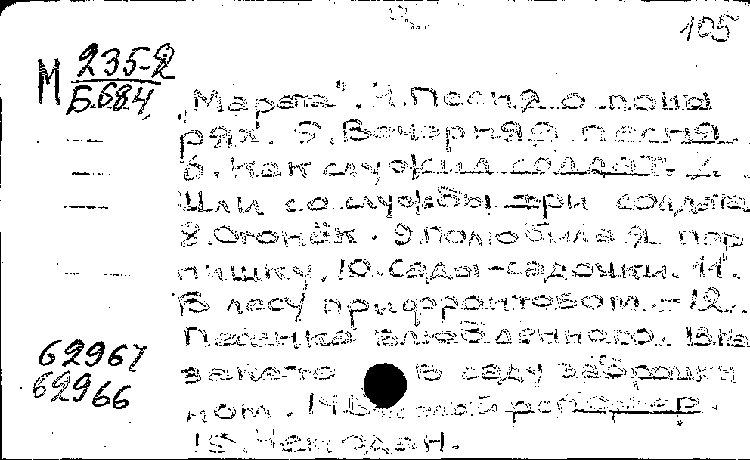 105
М 235-2
Б.684
„Марата". 4. Песня о поны
рях. 5. Вечерняя песня
6. Как служил солдат. 7.
Шли со службы три солдата
8. Огонёк. 9. Полюбила я пар
нишку. 10. Сады-садочки. 11.
В лесу прифронтовом. – 12.
Песенка влюбленного. 13.
В саду заброшен
62967
62966
ном. 14.
15. Чемодан.